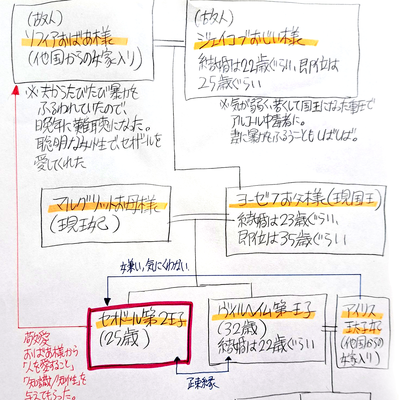 (故人)
ソフィアおばあ様
(他国からのお家入り)
※夫からたびたび暴力を
ふるわれていたので、
晩年に難聴になった。
聡明な女性で、セオドールを
愛してくれた
(故人)
ジェイコブおじい様
結婚は22歳ぐらい、即位は
25歳ぐらい
※気が弱く、若くして国王になった重圧で
アルコール中毒に。
妻に暴力をふるうこともしばしば。
マルグリットお母様
(現王妃)
ヨーゼフお父様(現国王)
結婚は23歳ぐらい、
即位は35歳ぐらい
嫌い、気にくわない
セオドール第2王子
(25歳)
ヴィルヘイム第一王子
(32歳)
結婚は22歳ぐらい
アイリス
王太子妃
(他国からの
お家入り)
疎縁
敬愛
おばあ様から
「人を愛すること」
「知識/知性」を
与えてもらった。